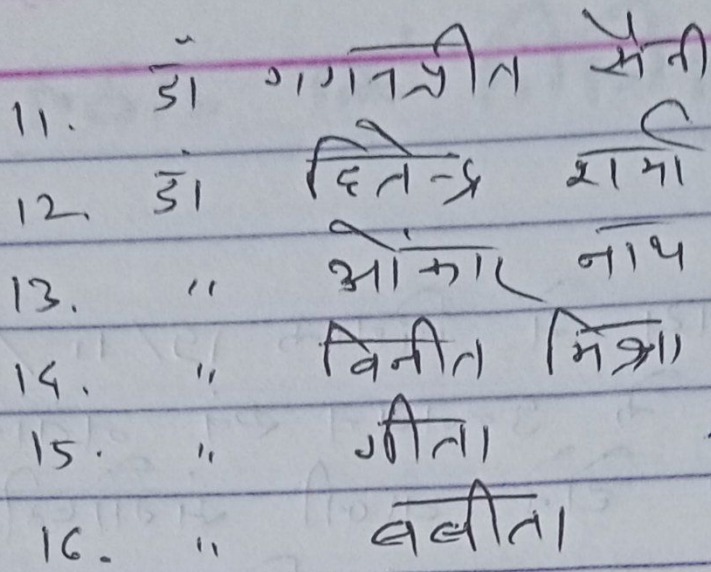 11. डॉ गगनप्रीत सैनी
12. डॉ हितेन्द्र शर्मा
13. " ओंकार नाथ
14. " विनीत मिश्रा
15. " गीता
16. " बबीता